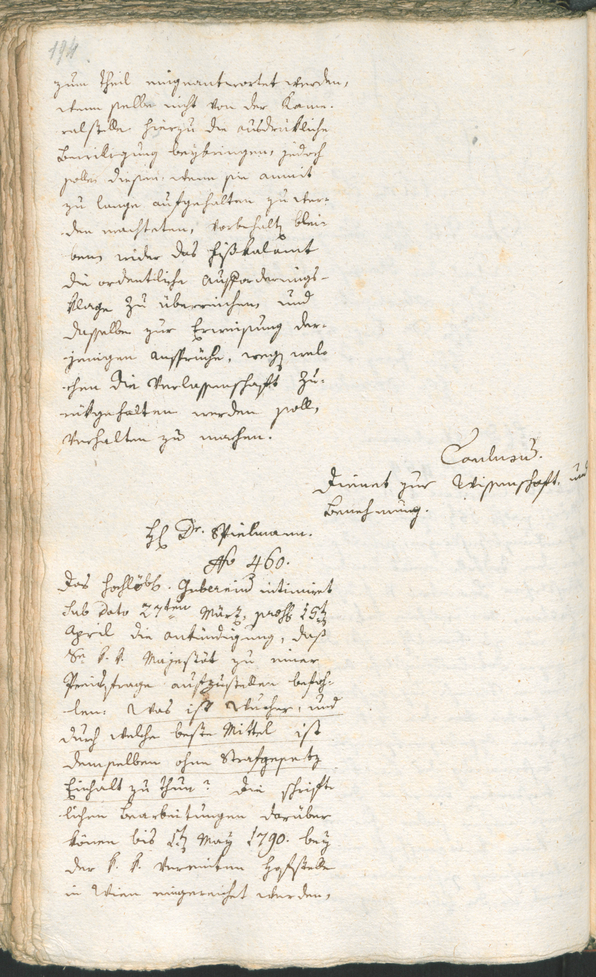 194
zum Theil eingeantwortet werden,
wenn selbe nicht von der Kame-
ralstelle hierzu die ausdrükliche
Bewilligung beybringen, jedoch
solle diesen, wenn sie anmit
zu lange aufgehalten zu wer-
den erachteten, vorbehalten blei-
ben, wider das Fißkalamt
die ordentliche Aufforderungs-
klage zu überreichen, und
dasselbe zur Erweisung der-
jenigen Ansprüche, wegen wel-
chen die Verlassenschaft zu-
rükgehalten werden soll,
verhalten zu machen.
Conlusũ.
Dienet zur Wissenschaft, und
Benehmung.
H Dr. Spielmann.
No 460.
Das hochlöbl. Guberniũ intimiret
sub dato 27ten März, praes 15ten
April die Ankündigung, daß
Se k. k. Majestät zu einer
Preisfrage aufzustellen befoh-
len: Was ist Wucher, und
durch welche beste Mittel ist
demselben ohne Strafgesetz
Einhalt zu thun? Die schrift-
lichen Bearbeitungen darüber
könen bis May 1790. bey
der k. k. vereinten Hofstelle
in Wien eingereichet werden,